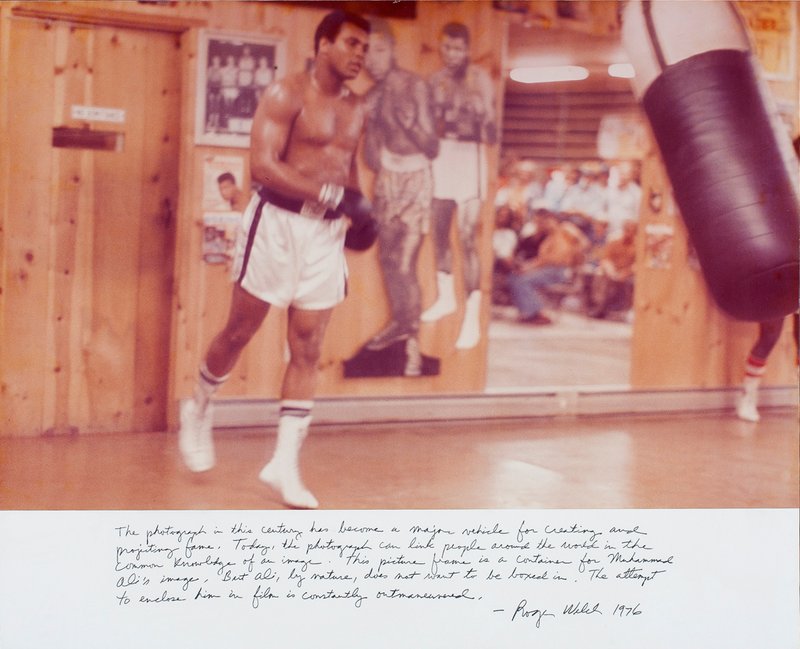 The photograph in this century has become a major vehicle for creating and
projecting fame. Today, the photograph can link people around the world in the
common knowledge of an image. This picture frame is a container for Muhammad
Ali's image. But Ali, by nature, does not want to be boxed in. The attempt
to enclose him in film is constantly outmaneuvered.
— Roger Welch 1976